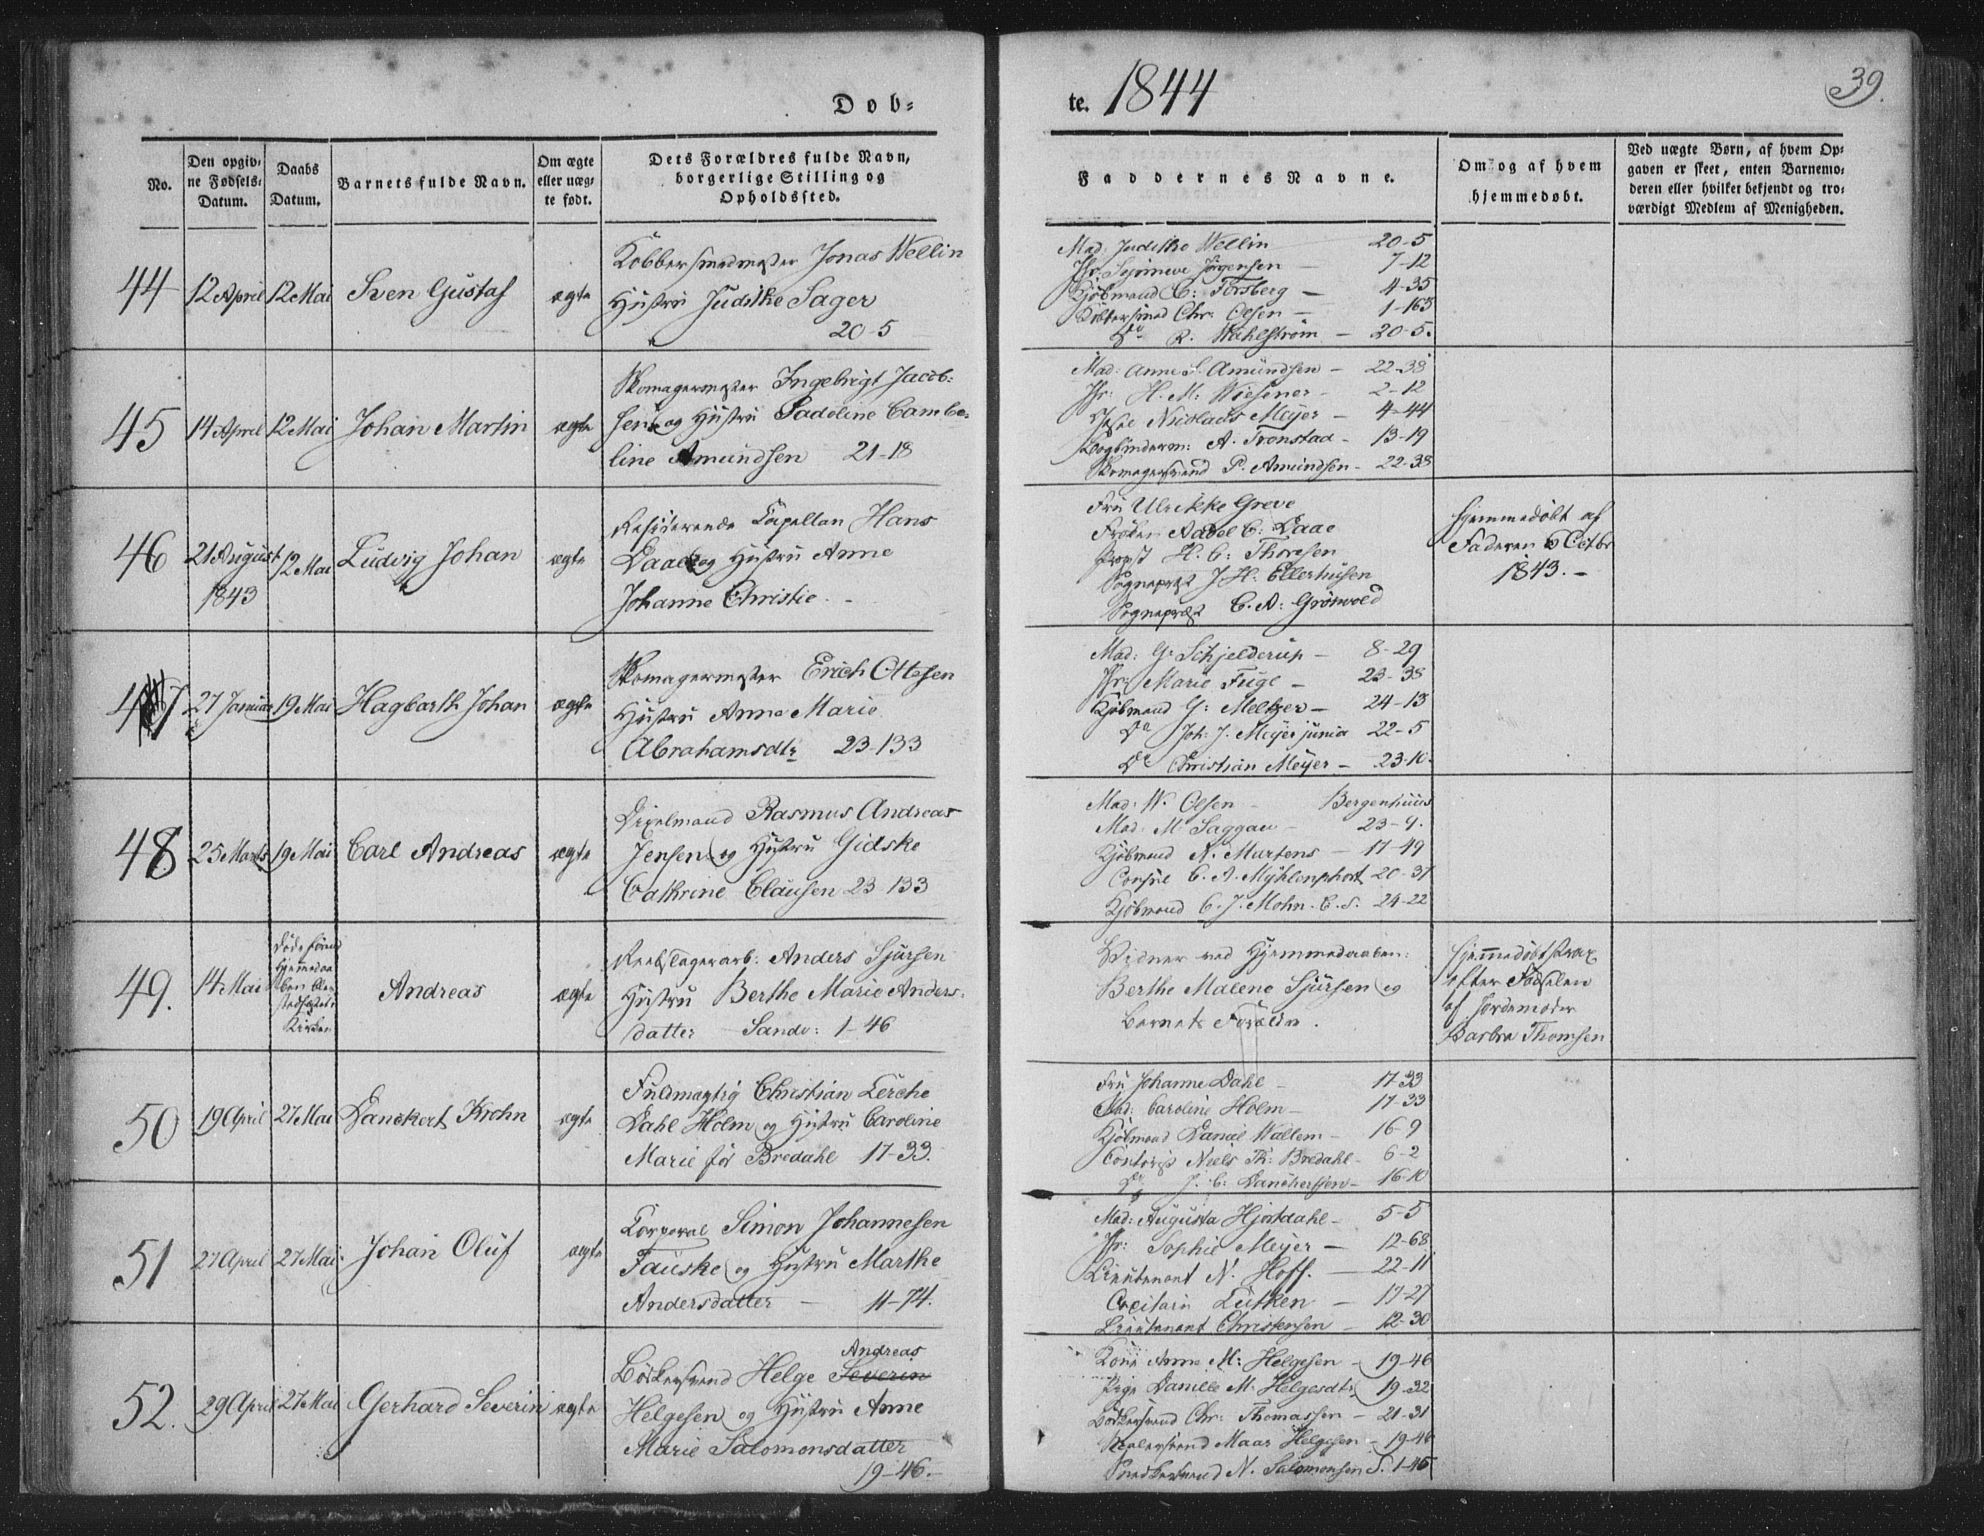 Dob-
te. 1844
39.
No.
Den opgiv-
ne Fødsels-
Datum.
Daabs
Datum.
Barnets fulde Navn.
Om ægte
eller uæg-
te født.
Dets Forældres fulde Navn,
borgerlige Stilling og
Opholdssted.
Faddernes Navne.
Om og af hvem
hjemmedøbt.
Ved uægte Børn, af hvem Op-
gaven er skeet, enten Barnemo-
deren eller hvilket bekjendt og tro-
værdigt Medlem af Menigheden.
44
12 April
12 Mai
Sven Gustaf
ægte
Kobbersmedmester Jonas Wellin
Hustru Judithe Sager
20-5
Mad: Judithe Wellin 20-5
Jfr. Jørgensen 7-12
Kjöbmand C: Forsberg 4-35
Chr. Olsen 1-163
Do R. Wahlström 20-5.
45
14 April
12 Mai
Johan Martin
ægte
Skomagermester Ingebrigt Jacob-
sen og Hustru Sadoline Cambo-
line Amundsen 21-18
Mad: Anne S. Amundsen 22-38
Jfr: H. M. Wiesener 2-12
Nicolads Meyer 4-44
Bogbinderm: A. Tronstad 13-19
Skomagersvend P. Amundsen 22-38
46
21 August
1843
12 Mai
Ludvig Johan
ægte
Residerende Capellan Hans
Daae og Hustru Anne
Johanne Christie.
Fru Ulrikke Greve
Frøken Aadel C: Daae
Propst H. C: Thoresen
Sognepræst J. H. Ellerhusen
Sognepræst C. A: Grönvold
Hjemmedöbt af
Faderen 6 Octbr
1843.
47
27 Januar
19 Mai
Hagbarth Johan
ægte
Skomagermester Erich Ottesen
Hustru Anne Marie
Abrahamsdtr 23-133
Mad: G. Schjelderup 8-29
Jfr: Marie Fuge 23-38
Kjöbmand G: Meltzer 24-13
Do Joh: J. Meyer junia 22-5
Do Christian Meyer 23-10.
48
25 Marts
19 Mai
Carl Andreas
ægte
Rasmus Andreas
Jensen og Hustru Gidske
Cathrine Clausen 23-133
Mad: W. Olsen Bergenhuus
Mad: M Saggau 23-9.
Kjöbmand N. Martens 17-49
Consul C. A. Mÿhlenphort 20-37
Kjöbmand C. J. Mohn. C. S. 24-22
49.
14 Mai
Kirken
Andreas
ægte
Reebslagerarb: Anders Sjursen
Hustru Berthe Marie Anders-
datter Sandv: 1-46
Vidner ved Hjemmedaaben:
Berthe Malene Sjursen og
Barnets Forældre.
Hjemmedöbt strax
efter Fødselen
af Jordemoder
Barbra Thomsen
50
19 April
27 Mai
Danckert Krohn
ægte
Fuldmægtig Christian Lerche
Dahl Holm og Hustru Caroline
Marie för Bredahl 17-33.
Fru Johanne Dahl 17-33
Mad: Caroline Holm 17-33
Kjöbmand Daniel Wallem 16-9
Contorist Niels Th: Bredahl 6-2
Do J. C: Danchertsen 16-10
51
27 April
27 Mai
Johan Oluf
ægte
Corporal Simon Johannesen
Fauske og Hustru Marthe
Andersdatter 11-74.
Mad: Augusta Hjortdahl 5-5
Jfr: Sophie Meyer 12-68
Lieutenant N. Hoff. 22-11
Capitain Lütken 17-27
Lieutenant Christensen 12-30
52.
29 April
27 Mai
Gerhard Severin
ægte
Andreas
Bödkersvend Helge Severin
Helgesen og Hustru Anne
Marie Salomonsdatter
19-46.
Kone Anne M: Helgesen 19-46
Pige Danille M. Helgesdtr 19-32
Bödkersvend Chr: Thomassen 21-31
Maar Helgesen 19-46
Snedkersvend N. Salomonsen S. 1-45